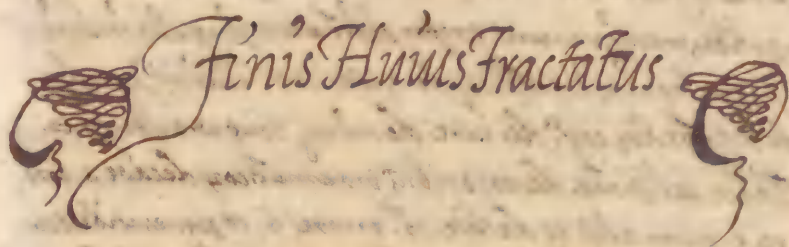 Finis Huius Tractatus